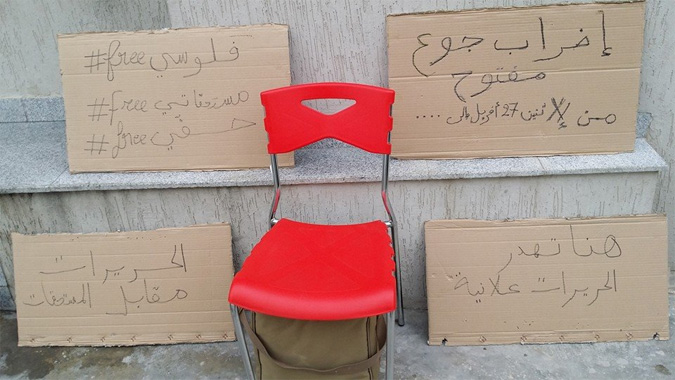 إضراب جوع
مفتوح
من الإثنين 27 أفريل إلى ....
#free فلوسي
#free مستحقاتي
#free حقي
هنا تهدر
الحريرات علانية
الحريرات
مقابل المستحقات